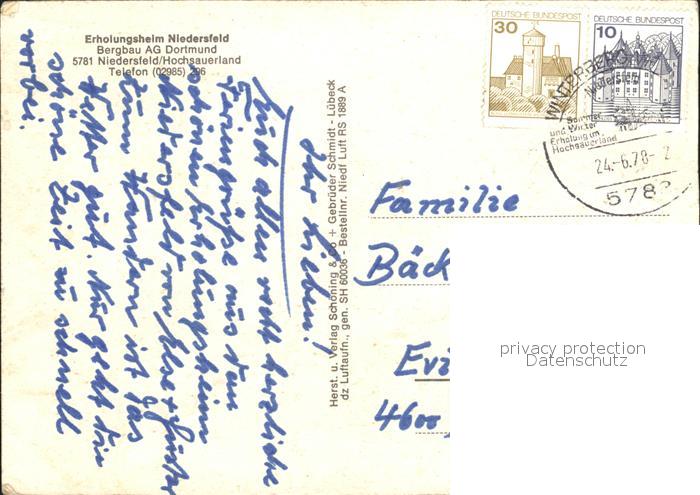 Erholungsheim Niedersfeld
Bergbau AG Dortmund
5781 Niedersfeld/Hochsauerland
Telefon (02985) 206
DEUTSCHE BUNDESPOST
30
DEUTSCHE BUNDESPOST
10
WINTERBERG
Niedersfeld
Sommer
und Winter
Erholung im
Hochsauerland
24.-6.78-
578
Ihr Lieben!
Euch allen recht herzliche
Feriengrüße aus dem
schönen Erholungsheim
Niedersfeld von Else + Gustav
Zum Wandern ist das
Wetter gut. Nur geht die
schöne Zeit zu schnell
vorbei.
Herst. u. Verlag Schöning & Co + Gebrüder Schmidt - Lübeck
dz Luftaufn., gen. SH 60036 - Bestellnr. Niedf Luft RS 1889 A
Familie
Bäck
Evi
4600
privacy protection
Datenschutz